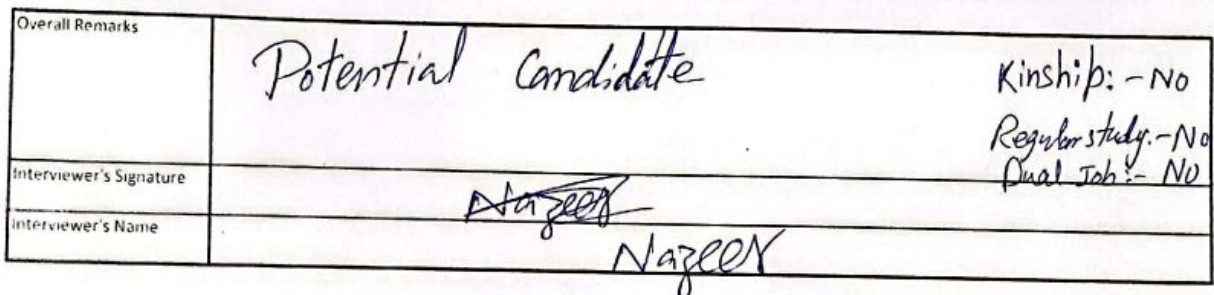 Overall Remarks
Potential Candidate
Kinship: - No
Regular study:- No
Dual Job:- No
Interviewer's Signature
Nazeer
Interviewer's Name
Nazeer